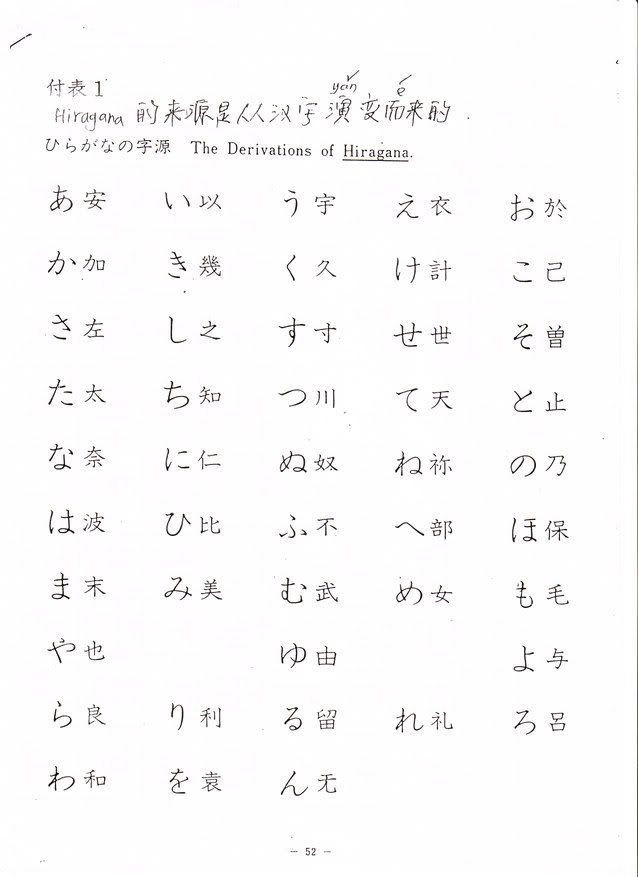 付表1
yǎn é
Hiragana 的来源是从人汉字演变而来的.
ひらがなの字源 The Derivations of Hiragana.
あ安 い以 う宇 え衣 お於
か加 き幾 く久 け計 こ己
さ左 し之 す寸 せ世 そ曽
た太 ち知 つ川 て天 と止
な奈 に仁 ぬ奴 ね祢 の乃
は波 ひ比 ふ不 へ部 ほ保
ま末 み美 む武 め女 も毛
や也 ゆ由 よ与
ら良 り利 る留 れ礼 ろ呂
わ和 を袁 ん无
- 52 -